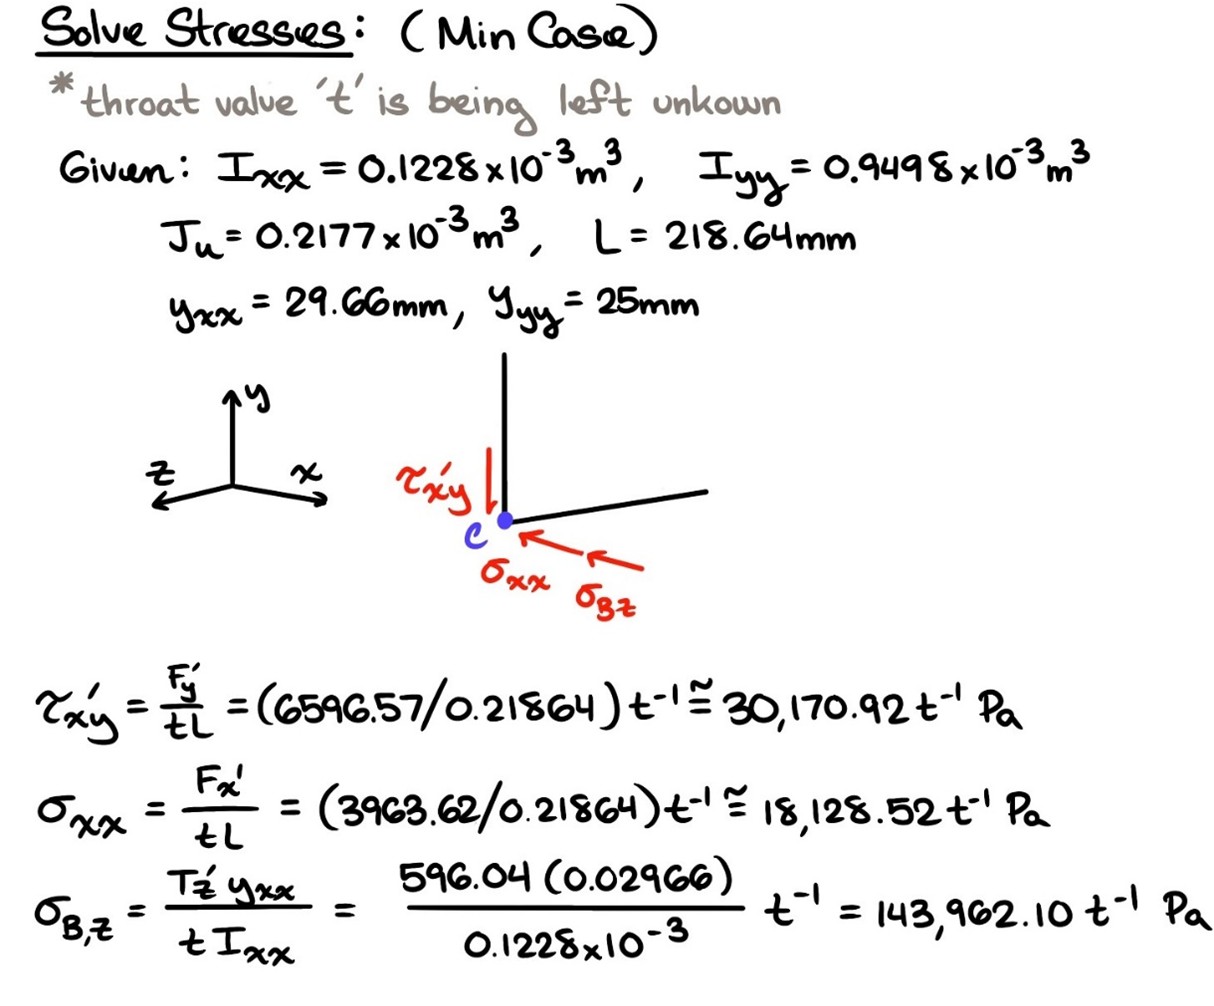 Solve Stresses: (Min Case)
*throat value 't' is being left unkown
Given: Ixx = 0.1228x10^-3 m^3, Iyy = 0.9498x10^-3 m^3
Ju = 0.2177x10^-3 m^3, L = 218.64mm
yxx = 29.66mm, yyy = 25mm
y
z x
τx'y
C
σxx
σBz
τx'y = Fy'/tL = (6596.57/0.21864) t^-1 ≅ 30,170.92 t^-1 Pa
σxx = Fx'/tL = (3963.62/0.21864) t^-1 ≅ 18,128.52 t^-1 Pa
σB,z = Tz' yxx/t Ixx = 596.04 (0.02966)/0.1228x10^-3 t^-1 = 143,962.10 t^-1 Pa